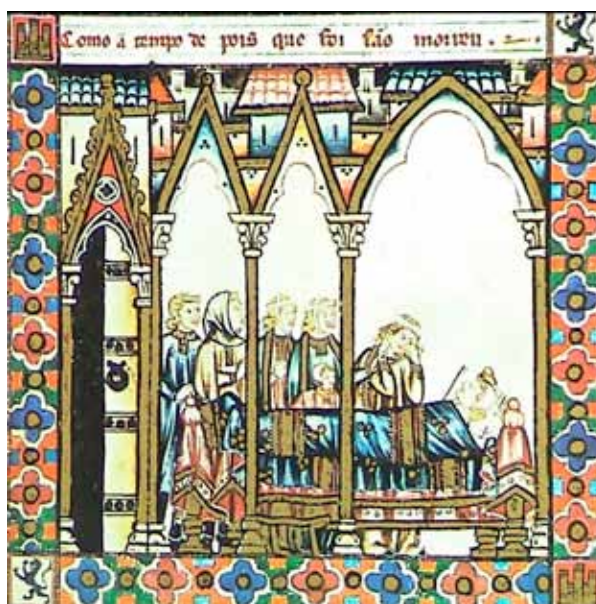 Como a tempo de pois que foi são morreu.